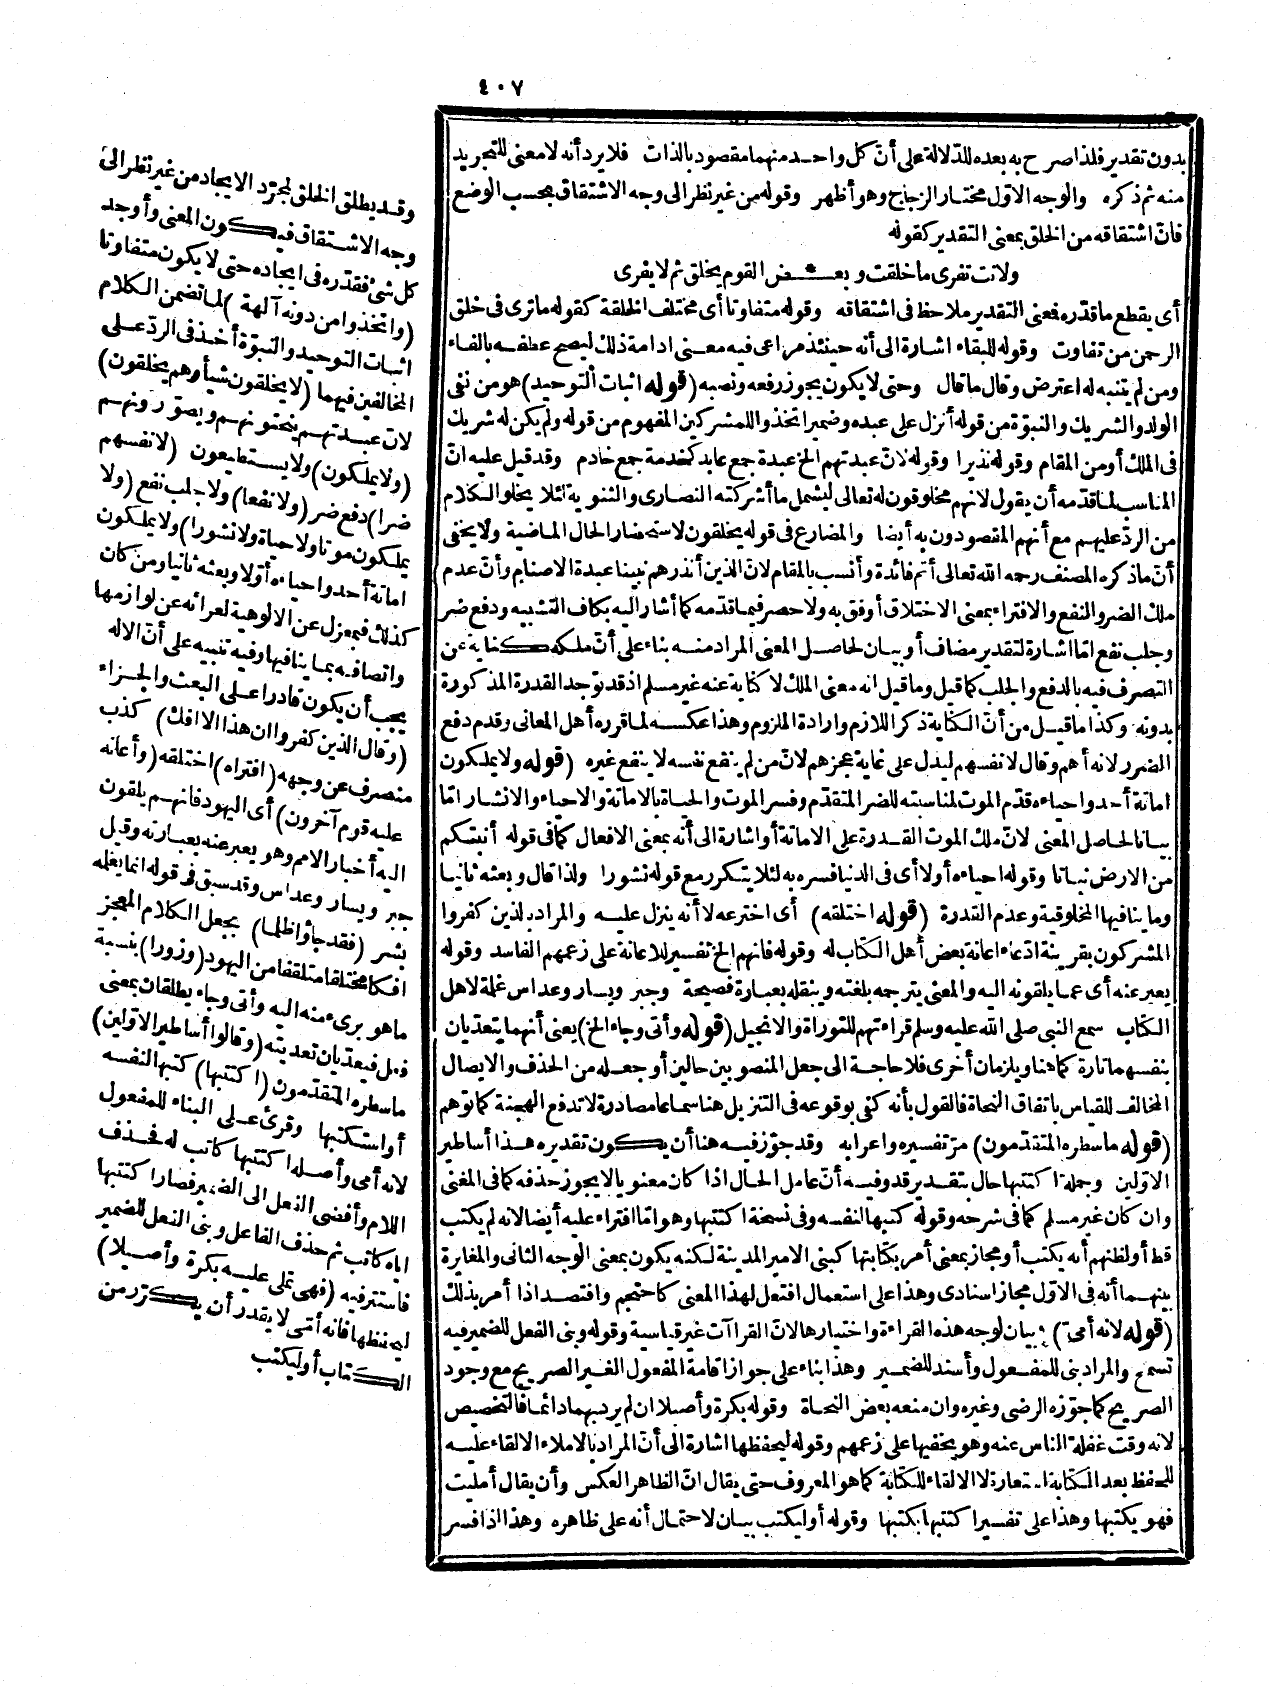 ٤٠٧
بدون تقدير فلذا صرح به بعده للدلالة على أنّ كل واحد منهما مقصود بالذات فلا يرد أنه لا معنى للتجريد
منه ثم ذكره والوجه الاوّل مختار الزجاج وهو أظهر وقوله من غير نظر الى وجه الاشتقاق بحسب الوضع
فانّ اشتقاقه من الخلق بمعنى التقدير كقوله
ولانت تفرى ما خلقت وبعــض القوم يخلق ثم لا يفرى
أى يقطع ما قدّره فعنى التقدير ملاحظ فى اشتقاقه وقوله متفاوتا أى مختلف الخلقة كقوله ماترى فى خلق
الرحمن من تفاوت وقوله للبقاء اشارة الى أنه حينئذ مراعى فيه معنى ادامة ذلك ليصح عطفه بالفاء
ومن لم يتنبه له اعترض وقال ما قال وحتى لا يكون يجوز رفعه ونصبه (قوله اثبات التوحيد) هو من نفى
الولد والشريك والنبوّة من قوله أنزل على عبده وضمير اتخذوا للمشركين المفهوم من قوله ولم يكن له شريك
فى الملك أو من المقام وقوله نذيرا وقوله لانّ عبدتهم الخ عبدة جمع عابد كخدمة جمع خادم وقد قيل عليه انّ
المناسب لما قدّمه أن يقول لانهم مخلوقون له تعالى ليشمل ما أشركته النصارى والثنوية لئلا يخلو الكلام
من الردّ عليهم مع أنهم المقصودون به أيضا والمضارع فى قوله يخلقون لاستحضار الحال الماضية ولا يخفى
أنّ ما ذكره المصنف رحمه الله تعالى أتم فائدة وأنسب بالمقام لانّ الذين أنذرهم نبينا عبدة الاصنام وأنّ عدم
ملك الضر والنفع والافتراء بمعنى الاختلاق أوفق به ولا حصر فيما قدّمه كما أشار اليه بكاف التشبيه ودفع ضر
وجلب نفع امّا اشارة لتقدير مضاف أو بيان لحاصل المعنى المراد منه بناء على أنّ ملكه كناية عن
التصرف فيه بالدفع والجلب كما قيل وما قيل انه معنى الملك لا كناية عنه غير مسلم اذ قد توجد القدرة المذكورة
بدونه وكذا ما قيل من أنّ الكناية ذكر اللازم وارادة الملزوم وهذا عكسه لما قرره أهل المعانى وقدم دفع
الضرر لانه أهم وقال لانفسهم ليدل على غاية عجزهم لانّ من لم ينفع نفسه لا ينفع غيره (قوله ولا يملكون
اماتة أحد واحياءه قدّم الموت لمناسبته للضر المتقدّم وفسر الموت والحياة بالاماتة والاحياء والانشار امّا
بيانا لحاصل المعنى لانّ ملك الموت القدرة على الاماتة أو اشارة الى أنه بمعنى الافعال كما فى قوله أنبتكم
من الارض نباتا وقوله احياءه أولا أى فى الدنيا فسره به لئلا يتكرر مع قوله نشورا ولذا قال وبعثه ثانيا
وما ينافيها المخلوقية وعدم القدرة (قوله اختلقه) أى اخترعه لا أنه ينزل عليه والمراد بالذين كفروا
المشركون بقرينة ادّعاء اعانة بعض أهل الكتاب له وقوله فانهم الخ تفسير للاعانة على زعمهم الفاسد وقوله
يعبر عنه أى عما يلقونه اليه والمعنى يترجمه بلغته وينقله بعبارة فصيحة وجبر ويسار وعداس غلمة لاهل
الكتاب سمع النبى صلى الله عليه وسلم قراءتهم للتوراة والانجيل (قوله وأتى وجاء الخ) يعنى أنهما يتعدّيان
بنفسهما تارة كما هنا ويلزمان أخرى فلا حاجة الى جعل المنصوبين حالين أو جعله من الحذف والايصال
المخالف للقياس باتفاق النحاة فالقول بأنه كفى بوقوعه فى التنزيل هنا سماعا مصادرة لا تدفع الهجنة كما توهم
(قوله ما سطره المتقدّمون) مرّ تفسيره واعرابه وقد جوّز فيه هنا أن يكون تقديره هذا أساطير
الاوّلين وجملة اكتتبها حال بتقدير قد وفيه أنّ عامل الحال اذا كان معنويا لا يجوز حذفه كما فى المغنى
وان كان غير مسلم كما فى شرحه وقوله كتبها لنفسه وفى نسخة اكتتبها وهو امّا افتراء عليه أيضا لانه لم يكتب
قط أو لظنهم أنه يكتب أو مجاز بمعنى أمر بكتابتها كبنى الامير المدينة لكنه يكون بمعنى الوجه الثانى والمغايرة
بينهما أنه فى الاوّل مجاز اسنادى وهذا على استعمال افتعل لهذا المعنى كاحتجم وافتصد اذا أمر بذلك
(قوله لانه أمىّ) بيان لوجه هذه القراءة واختيارها لانّ القراآت غير قياسية وقوله وبنى الفعل للضمير فيه
تسمح والمراد بنى للمفعول وأسند للضمير وهذا بناء على جواز اقامة المفعول الغير الصريح مع وجود
الصريح كما جوّزه الرضى وغيره وان منعه بعض النحاة وقوله بكرة وأصيلا ان لم يرد بهما دائما فالتخصيص
لانه وقت غفلة الناس عنه وهو يخفيها على زعمهم وقوله ليحفظها اشارة الى أنّ المراد بالاملاء الالقاء عليه
للحفظ بعد الكتابة استعارة لا الالقاء للكتابة كما هو المعروف حتى يقال انّ الظاهر العكس وأن يقال أمليت
فهو يكتبها وهذا على تفسير اكتتبها بكتبها وقوله أو ليكتب بيان لاحتمال أنه على ظاهره وهذا اذا فسر
وقد يطلق الخلق لمجرّد الايجاد من غير نظر الى
وجه الاشتقاق فيكون المعنى وأوجد
كل شئ فقدّره فى ايجاده حتى لا يكون متفاوتا
(واتخذوا من دونه آلهة) لما تضمن الكلام
اثبات التوحيد والنبوّة أخذ فى الردّ على
المخالفين فيهما (لا يخلقون شيأ وهم يخلقون)
لانّ عبدتهم ينحتونهم ويصوّرونهم
(ولا يملكون) ولا يستطيعون (لانفسهم
ضرا) دفع ضر (ولا نفعا) ولا جلب نفع (ولا
يملكون موتا ولا حياة ولا نشورا) ولا يملكون
اماتة أحد واحياءه أوّلا وبعثه ثانيا ومن كان
كذلك فبمعزل عن الالوهية لعرائه عن لوازمها
واتصافه بما ينافيها وفيه تنبيه على أنّ الاله
يجب أن يكون قادرا على البعث والجزاء
(وقال الذين كفروا ان هذا الا افك) كذب
منصرف عن وجهه (افتراه) اختلقه (وأعانه
عليه قوم آخرون) أى اليهود فانهم يلقون
اليه أخبار الامم وهو يعبر عنه بعبارته وقيل
جبر ويسار وعداس وقد سبق فى قوله انما يعلمه
بشر (فقد جاؤا ظلما) بجعل الكلام المعجز
افكا مختلقا متلقفا من اليهود (وزورا) بنسبة
ما هو برىء منه اليه وأتى وجاء يطلقان بمعنى
فعل فيعديان تعديته (وقالوا أساطير الاوّلين)
ما سطره المتقدّمون (اكتتبها) كتبها لنفسه
أو استكتبها وقرئ على البناء للمفعول
لانه أمى وأصله اكتتبها كاتب له فحذف
اللام وأفضى الفعل الى الضمير فصار اكتتبها
اياه كاتب ثم حذف الفاعل وبنى الفعل للضمير
فاستتر فيه (فهى تملى عليه بكرة وأصيلا)
ليحفظها فانه أمّى لا يقدر أن يكرّر من
الكتاب أو ليكتب